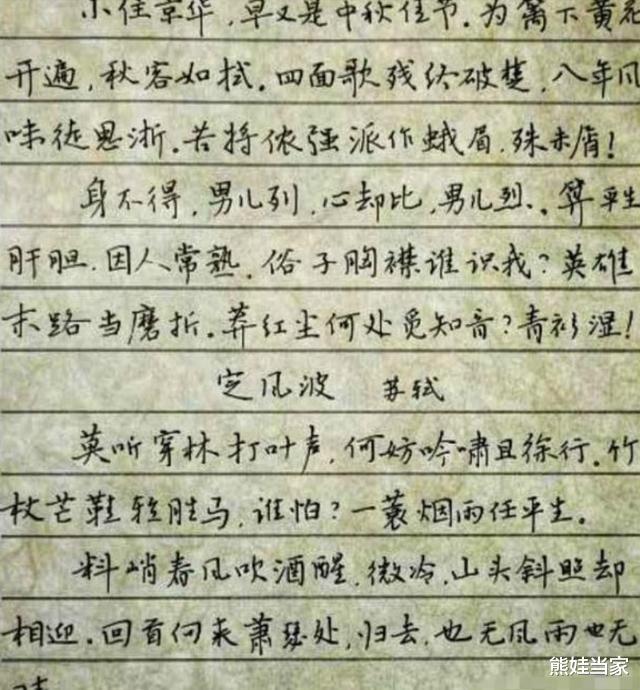 小住京华，早又是中秋佳节。为篱下黄花
开遍，秋容如拭。四面歌残终破楚，八年风
味徒思浙。苦将侬强派作蛾眉，殊未屑！
身不得，男儿列，心却比，男儿烈。算平生
肝胆，因人常熟，俗子胸襟谁识我？英雄
末路当磨折。莽红尘何处觅知音？青衫湿！
定风波 苏轼
莫听穿林打叶声，何妨吟啸且徐行。竹
杖芒鞋轻胜马，谁怕？一蓑烟雨任平生。
料峭春风吹酒醒，微冷，山头斜照却
相迎。回首向来萧瑟处，归去，也无风雨也无
熊娃当家